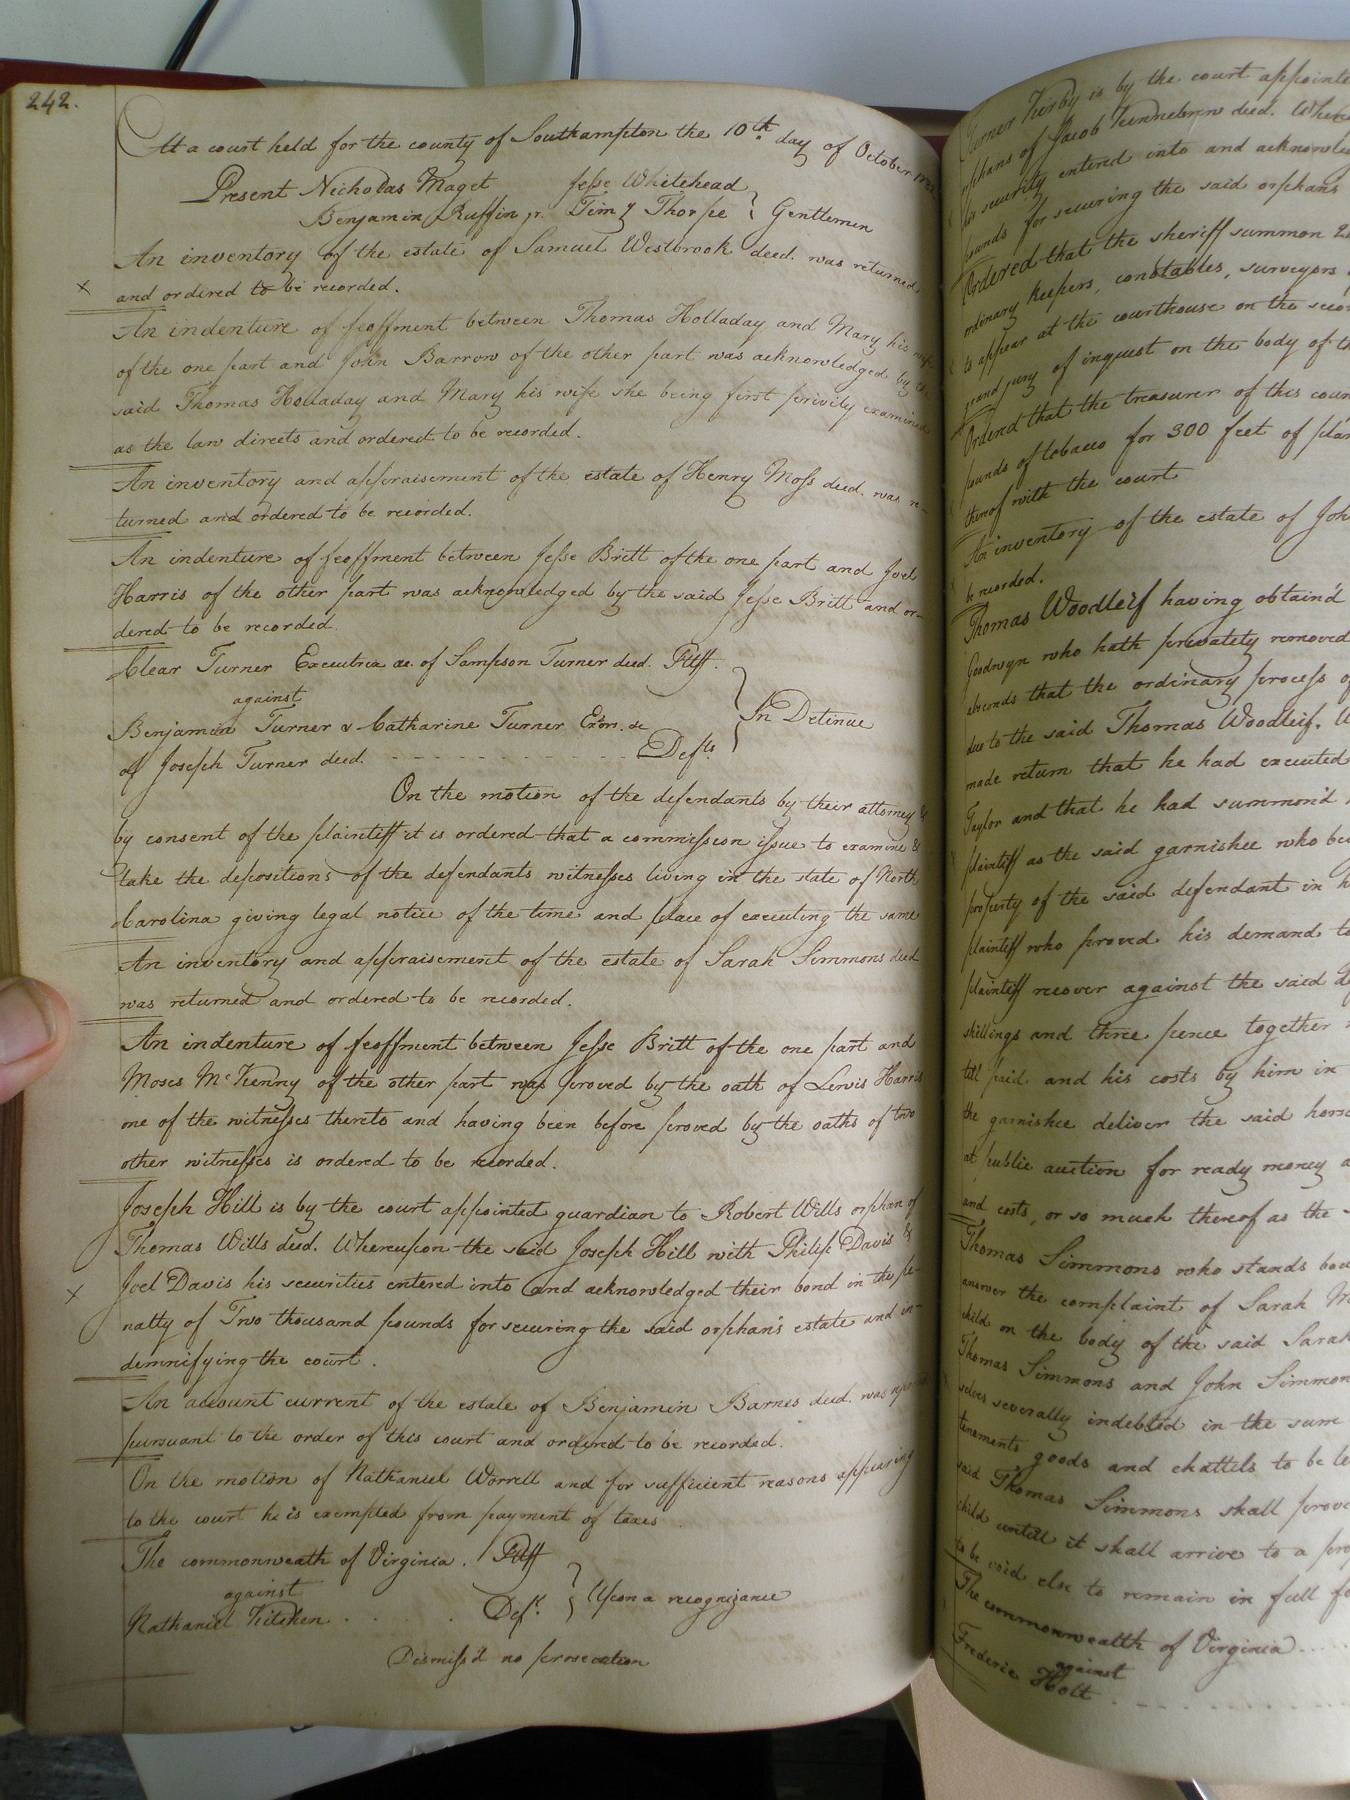 242.
At a court held for the county of Southampton the 10th day of October
Present Nicholas Maget Jesse Whitehead
Benjamin Ruffin jr. Timy Thorpe } Gentlemen
An inventory of the estate of Samuel Westbrook deed. was returned
x and ordered to be recorded.
An indenture of feoffment between Thomas Holladay and Mary his wife
of the one part and John Barrow of the other part was acknowledged by the
said Thomas Holladay and Mary his wife she being first privily examined
as the law directs and ordered to be recorded.
An inventory and appraisement of the estate of Henry Moss deed. was re-
turned and ordered to be recorded.
An indenture of feoffment between Jesse Britt of the one part and Joel
Harris of the other part was acknowledged by the said Jesse Britt and or-
dered to be recorded.
Clear Turner Executrix &c. of Sampson Turner deed. Pltff.
against
Benjamin Turner & Catharine Turner Exors. &c
of Joseph Turner deed. Defts. } In Detinue
On the motion of the defendants by their attorney &
by consent of the plaintiff it is ordered that a commission issue to examine &
take the depositions of the defendants witnesses living in the state of North
Carolina giving legal notice of the time and place of executing the same
An inventory and appraisement of the estate of Sarah Simmons deed
was returned and ordered to be recorded.
An indenture of feoffment between Jesse Britt of the one part and
Moses McKenny of the other part was proved by the oath of Lewis Harris
one of the witnesses thereto and having been before proved by the oaths of two
other witnesses is ordered to be recorded.
Joseph Hill is by the court appointed guardian to Robert Wills orphan of
Thomas Wills deed. Whereupon the said Joseph Hill with Philip Davis &
x Joel Davis his securities entered into and acknowledged their bond in the pe-
nalty of Two thousand pounds for securing the said orphan's estate and in-
demnifying the court.
An account current of the estate of Benjamin Barnes deed. was
pursuant to the order of this court and ordered to be recorded.
On the motion of Nathaniel Worrell and for sufficient reasons appearing
to the court he is exempted from payment of taxes
The commonweath of Virginia. Pltff
against
Nathaniel Kitchen . . . . Deft. } Upon a recognizance
Dismiss'd no prosecution
Turner Kirby is by the court appointe
orphans of Jacob Vinnebrew deed. Where
his security entered into and acknowle
pounds for securing the said orphans
Ordered that the sheriff summon 2
ordinary keepers, constables, surveyors
to appear at the courthouse on the secon
grand jury of inquest on the body of th
Ordered that the treasurer of this coun
pounds of tobacco for 300 feet of plan
thereof with the court
An inventory of the estate of Joh
be recorded.
Thomas Woodleif having obtain'd
Goodwyn who hath privately removed
absconds that the ordinary process of
due to the said Thomas Woodleif. W
made return that he had executed
Taylor and that he had summon'd
plaintiff as the said garnishee who be
property of the said defendant in h
plaintiff who proved his demand to
plaintiff recover against the said
shillings and three pence together
till paid and his costs by him in
the garnishee deliver the said horse
at public auction for ready money a
and costs, or so much thereof as the
Thomas Simmons who stands bou
answer the complaint of Sarah M
child on the body of the said Sarah
Thomas Simmons and John Simmon
selves severally indebted in the sum
tenements goods and chattels to be le
said Thomas Simmons shall prove
child untill it shall arrive to a pro
to be void else to remain in full fo
The commonwealth of Virginia....
against
Frederic Holt